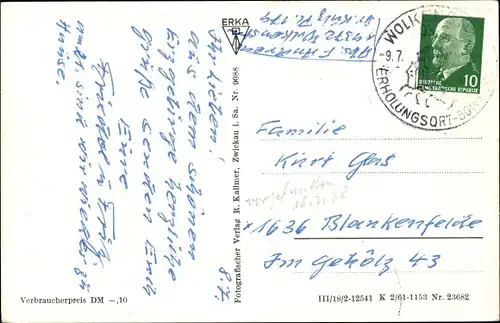 8.7.
Ihr Lieben!
Aus dem schönen
Erzgebirge herzliche
Grüße senden Euch
Eure
Friedel u. Fritz.
sind wir wieder zu
Hause.
Verbraucherpreis DM –,10
ERKA
Fotografischer Verlag R. Kallmer, Zwickau i. Sa. Nr. 9088
Abs.
9372
WOLKEN
-9.7.
ERHOLUNGSORT
10
DEUTSCHE
DEMOKRATISCHE REPUBLIK
Familie
Kurt Glas
1636 Blankenfelde
Im Gehölz 43
III/18/2-12541 K 2/61-1153 Nr. 23682